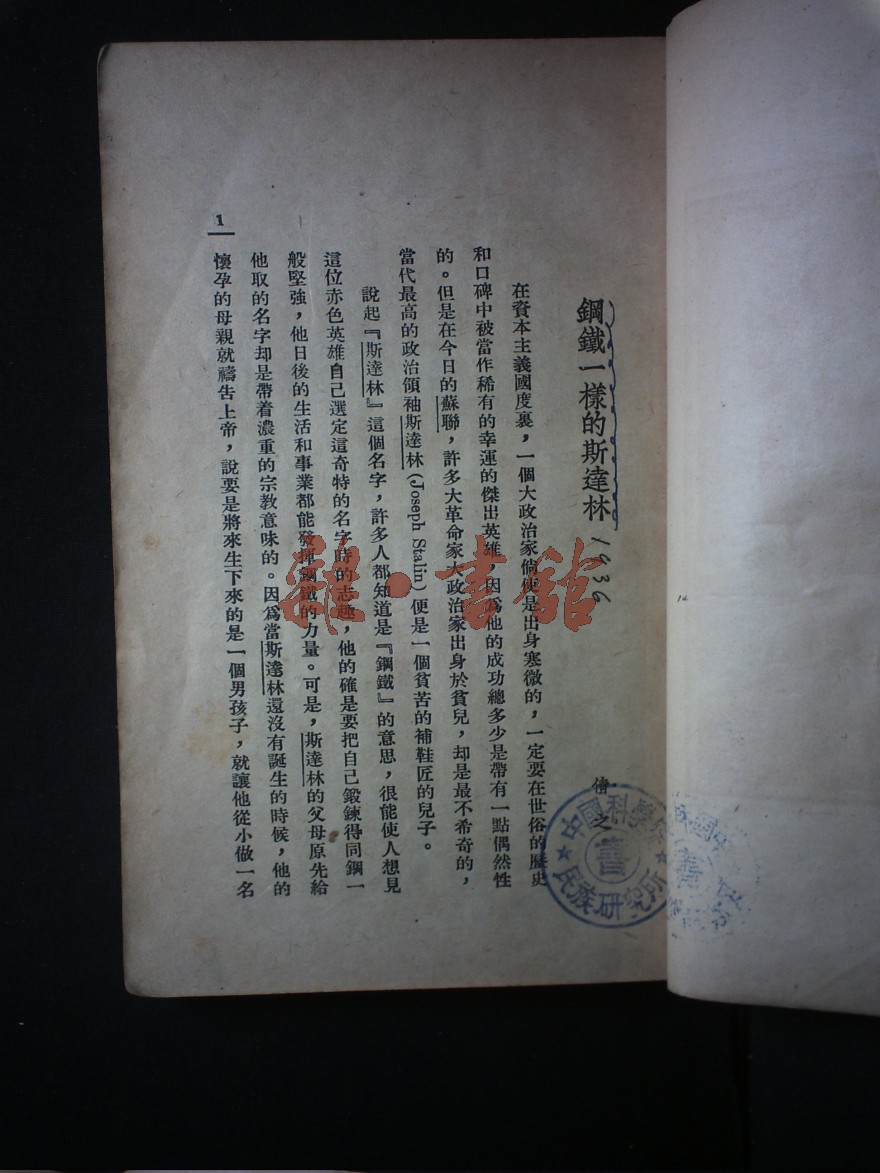 鋼鐵一樣的斯達林 1936
之
在資本主義國度裏，一個大政治家倘使是出身寒微的，一定要在世俗的歷史
和口碑中被當作稀有的幸運的傑出英雄，因爲他的成功總多少是帶有一點偶然性
的。但是在今日的蘇聯，許多大革命家大政治家出身於貧兒，却是最不希奇的，
當代最高的政治領袖斯達林(Joseph Stalin)便是一個貧苦的補鞋匠的兒子。
說起『斯達林』這個名字，許多人都知道是『鋼鐵』的意思，很能使人想見
這位赤色英雄自己選定這奇特的名字時的志趣，他的確是要把自己鍛鍊得同鋼一
般堅強，他日後的生活和事業都能發揮鋼鐵的力量。可是，斯達林的父母原先給
他取的名字却是帶着濃重的宗教意味的。因爲當斯達林還沒有誕生的時候，他的
懷孕的母親就禱告上帝，說要是將來生下來的是一個男孩子，就讓他從小做一名
1
中國科學院
書
民族研究所
雜·書館